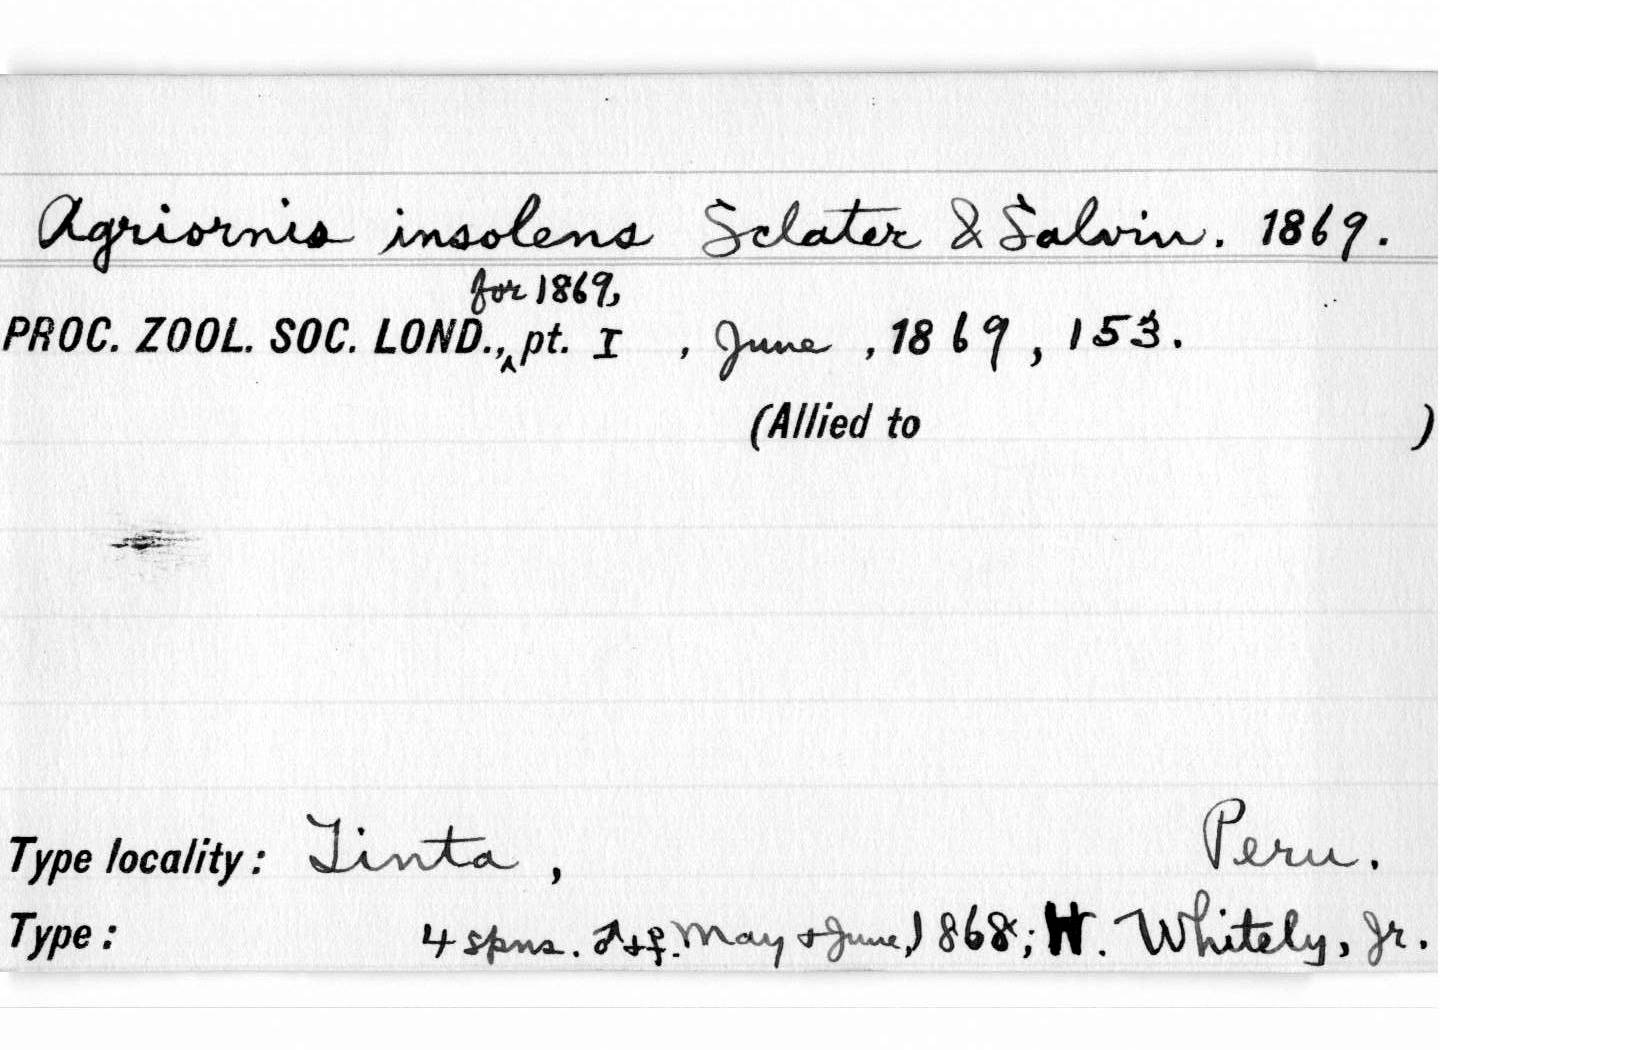 Agriornis insolens Sclater & Salvin. 1869.
for 1869,
PROC. ZOOL. SOC. LOND., ‸ pt. I , June , 1869, 153.
(Allied to )
Type locality: Tinta , Peru.
Type: 4 spns. ♂+♀. May + June, 1868; H. Whitely, Jr.